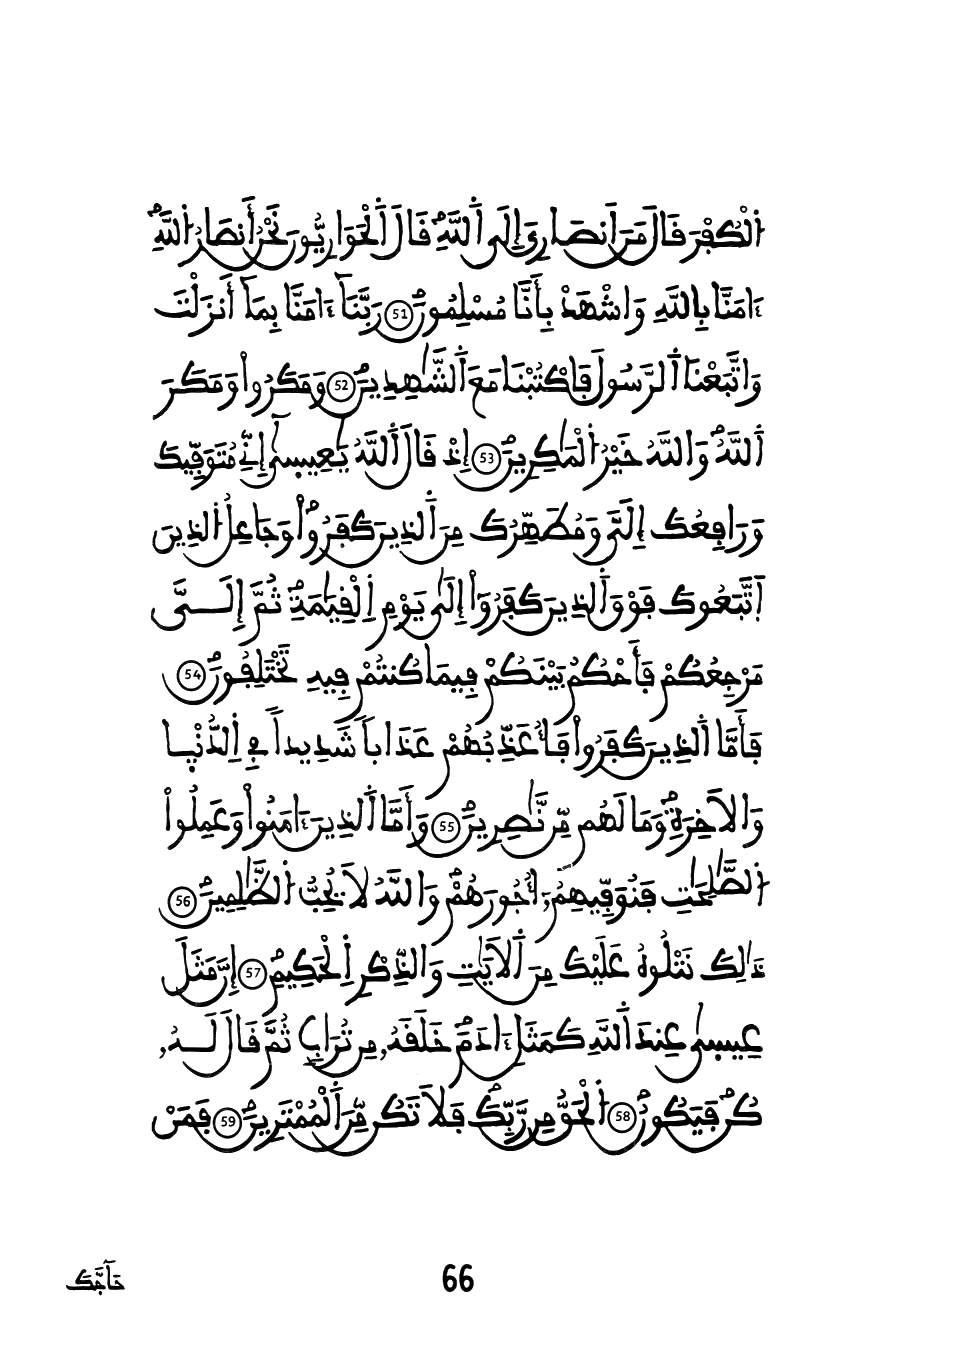 اُ۬لْكُفْرَ قَالَ مَنَ اَنصَارِيَ إِلَي اَ۬للَّهِۖ قَالَ اَ۬لْحَوَارِيُّونَ نَحْنُ أَنصَارُ اُ۬للَّهِۖ
ءَامَنَّا بِاللَّهِ وَاشْهَدْ بِأَنَّا مُسْلِمُونَۖ 51 رَبَّنَآ ءَامَنَّا بِمَآ أَنزَلْتَ
وَاتَّبَعْنَا اَ۬لرَّسُولَ فَاكْتُبْنَا مَعَ اَ۬لشَّٰهِدِينَۖ 52 وَمَكَرُواْ وَمَكَرَ
اَ۬للَّهُۖ وَاللَّهُ خَيْرُ اُ۬لْمَٰكِرِينَۖ 53 إِذْ قَالَ اَ۬للَّهُ يَٰعِيسَىٰٓ إِنِّے مُتَوَفِّيكَ
وَرَافِعُكَ إِلَيَّ وَمُطَهِّرُكَ مِنَ اَ۬لذِينَ كَفَرُواْۖ وَجَاعِلُ اُ۬لذِينَ
اَ۪تَّبَعُوكَ فَوْقَ اَ۬لذِينَ كَفَرُوٓاْ إِلَىٰ يَوْمِ اِ۬لْقِيَٰمَةِۖ ثُمَّ إِلَيَّ
مَرْجِعُكُمْ فَأَحْكُمُ بَيْنَكُمْ فِيمَا كُنتُمْ فِيهِ تَخْتَلِفُونَۖ 54
فَأَمَّا اَ۬لذِينَ كَفَرُواْ فَأُعَذِّبُهُمْ عَذَاباٗ شَدِيداٗ فِے اِ۬لدُّنْيٜا
وَالَاخِرَةِۖ وَمَا لَهُم مِّن نَّٰصِرِينَۖ 55 وَأَمَّا اَ۬لذِينَ ءَامَنُواْ وَعَمِلُواْ
اُ۬لصَّٰلِحَٰتِ فَنُوَفِّيهِمُۥٓ أُجُورَهُمْۖ وَاللَّهُ لَا يُحِبُّ اُ۬لظَّٰلِمِينَۖ 56
ذَٰلِكَ نَتْلُوهُ عَلَيْكَ مِنَ اَ۬لَايَٰتِ وَالذِّكْرِ اِ۬لْحَكِيمِۖ 57 إِنَّ مَثَلَ
عِيسَىٰ عِندَ اَ۬للَّهِ كَمَثَلِ ءَادَمَۖ خَلَقَهُۥ مِن تُرَابٖ ثُمَّ قَالَ لَهُۥ
كُن فَيَكُونُۖ 58 اُ۬لْحَقُّ مِن رَّبِّكَۖ فَلَا تَكُن مِّنَ اَ۬لْمُمْتَرِينَۖ 59 فَمَنْ
66
حَآجَّكَ